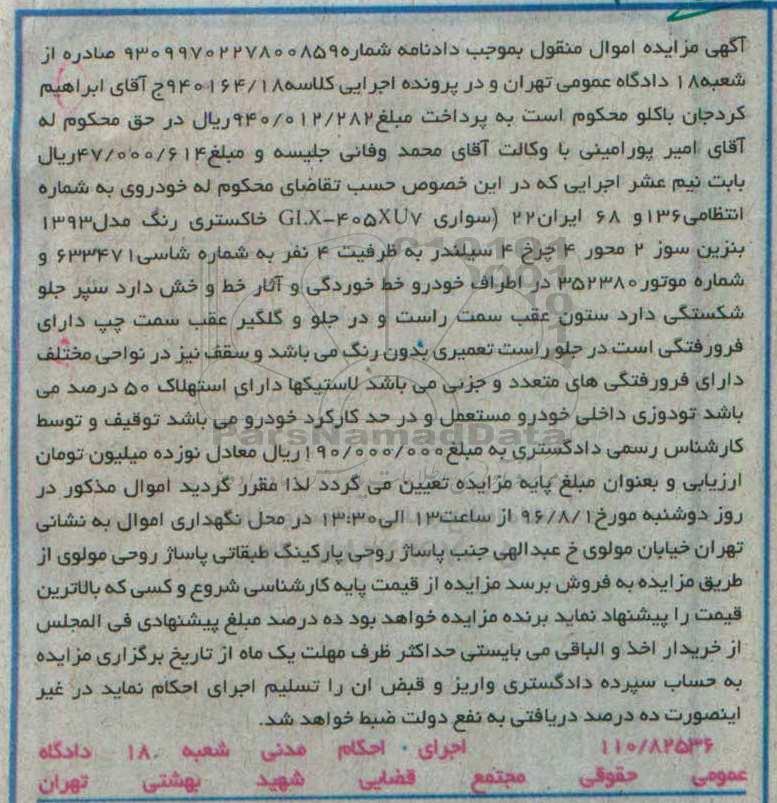 آگهی مزایده اموال منقول بموجب دادنامه شماره۹۳۰۹۹۷۰۲۲۷۸۰۰۸۵۹ صادره از
شعبه۱۸ دادگاه عمومی تهران و در پرونده اجرایی کلاسه۹۴۰۱۶۴/۱۸ج آقای ابراهیم
کردجان باکلو محکوم است به پرداخت مبلغ۹۴۰/۰۱۲/۲۸۲ریال در حق محکوم له
آقای امیر پورامینی با وکالت آقای محمد وفائی جلیسه و مبلغ۴۷/۰۰۰/۶۱۴ریال
بابت نیم عشر اجرایی که در این خصوص حسب تقاضای محکوم له خودروی به شماره
انتظامی۱۳۶و ۶۸ ایران۲۲ (سواری GLX-۴۰۵XU۷ خاکستری رنگ مدل۱۳۹۳
بنزین سوز ۲ محور ۴ چرخ ۴ سیلندر به ظرفیت ۴ نفر به شماره شاسی۶۳۳۴۷۱ و
شماره موتور۳۵۲۳۸۰ در اطراف خودرو خط خوردگی و آثار خط و خش دارد سپر جلو
شکستگی دارد ستون عقب سمت راست و در جلو و گلگیر عقب سمت چپ دارای
فرورفتگی است در جلو راست تعمیری بدون رنگ می باشد و سقف نیز در نواحی مختلف
دارای فرورفتگی های متعدد و جزیی می باشد لاستیکها دارای استهلاک ۵۰ درصد می
باشد تودوزی داخلی خودرو مستعمل و در حد کارکرد خودرو می باشد توقیف و توسط
ParsNamadData
کارشناس رسمی دادگستری به مبلغ۱۹۰/۰۰۰/۰۰۰ریال معادل نوزده میلیون تومان
ارزیابی و بعنوان مبلغ پایه مزایده تعیین می گردد لذا مقرر گردید اموال مذکور در
روز دوشنبه مورخ۹۶/۸/۱ از ساعت۱۳ الی۱۳:۳۰ در محل نگهداری اموال به نشانی
تهران خیابان مولوی خ عبدالهی جنب پاساژ روحی پارکینگ طبقاتی پاساژ روحی مولوی از
طریق مزایده به فروش برسد مزایده از قیمت پایه کارشناسی شروع و کسی که بالاترین
قیمت را پیشنهاد نماید برنده مزایده خواهد بود ده درصد مبلغ پیشنهادی فی المجلس
از خریدار اخذ و الباقی می بایستی حداکثر ظرف مهلت یک ماه از تاریخ برگزاری مزایده
به حساب سپرده دادگستری واریز و قبض ان را تسلیم اجرای احکام نماید در غیر
اینصورت ده درصد دریافتی به نفع دولت ضبط خواهد شد.
۱۱۰/۸۲۵۳۶ اجرای احکام مدنی شعبه ۱۸ دادگاه
عمومی حقوقی مجتمع قضایی شهید بهشتی تهران